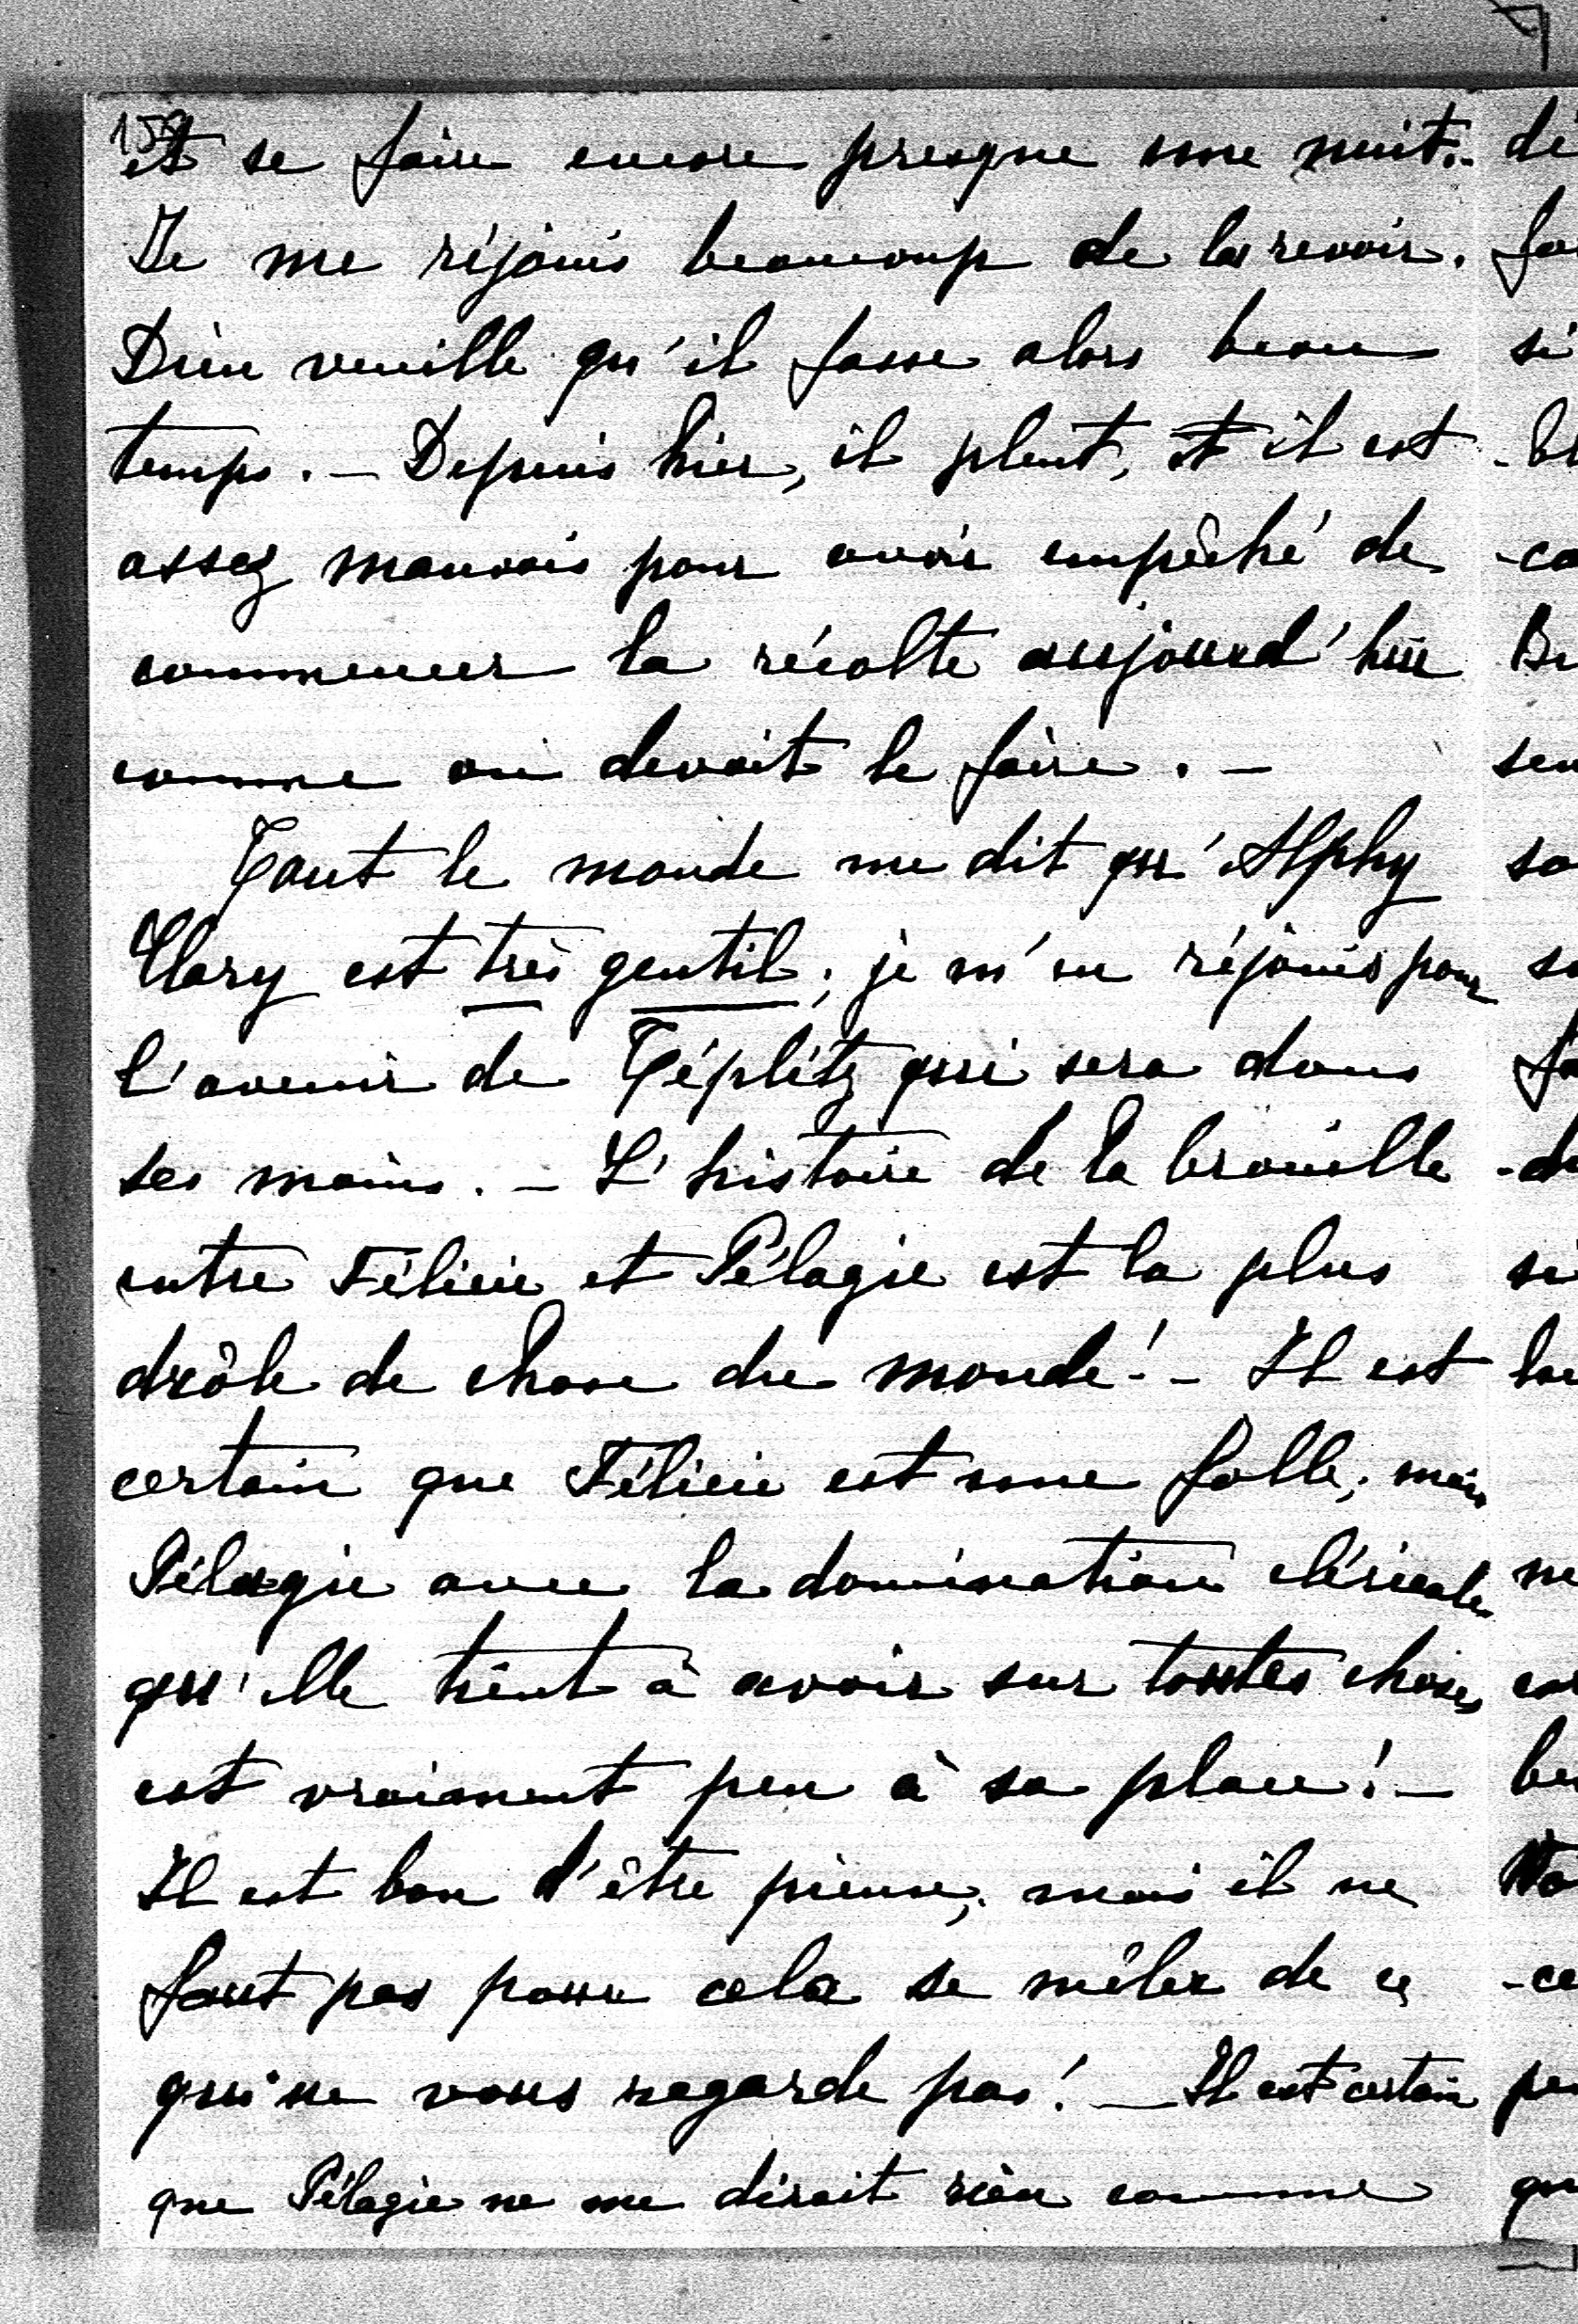 et se faire encore presque une nuit.-
Je me réjouis beaucoup de la revoir.
Dieu veuille qu'il fasse alors beau
temps. - Depuis hier, il pleut, et il est
assez mauvais pour avoir empêché de
commencer la récolte aujourd'hui
comme on devait le faire. -
Tout le monde me dit qu'Alphy
Clary est très gentil; je m'en réjouis pour
l'avenir de Téplitz qui sera dans
ses mains. - L'histoire de la brouille
entre Félicie et Pélagie est la plus
drôle de chose du monde! - Il est
certain que Félicie est une folle; mais
Pélagie avec la domination cléricale
qu'elle tient à avoir sur toutes choses
est vraiment peu à sa place! -
Il est bon d'être pieuse, mais il ne
faut pas pour cela se mêler de ce
qui ne vous regarde pas! - Il est certain
que Pélagie ne me dirait rien comme